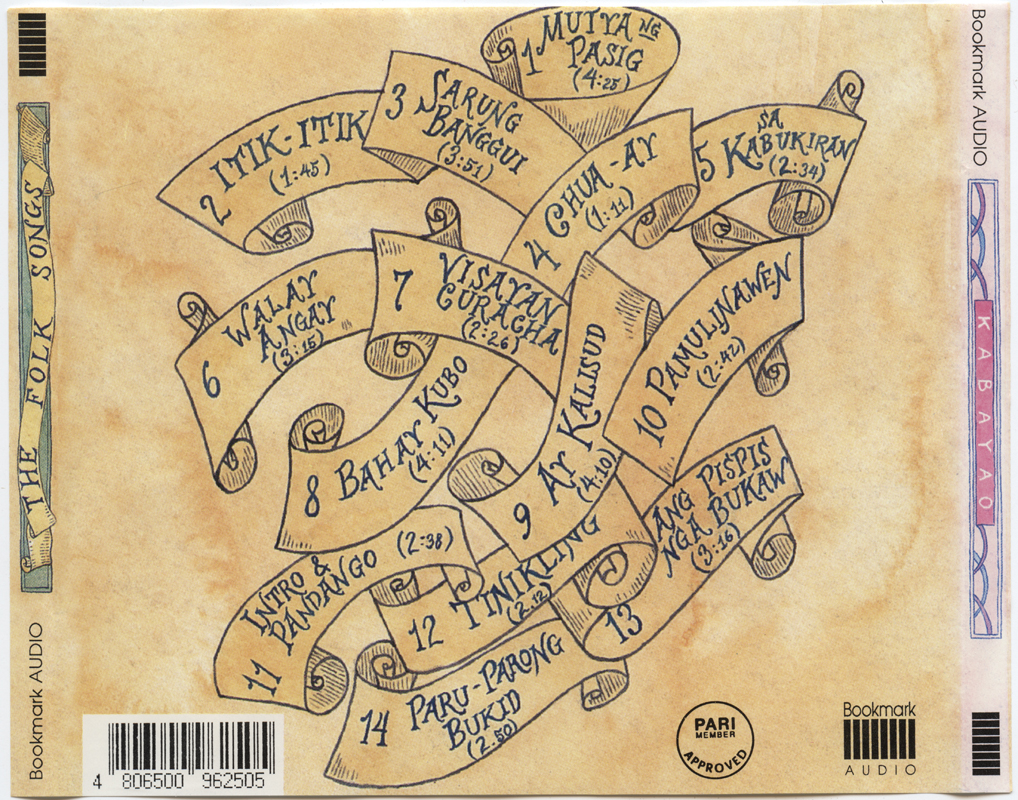 1 MUTYA NG
PASIG
(4:25)
2 ITIK-ITIK
(1:45)
3 SARUNG
BANGGUI
(3:51)
4 CHUA-AY
(1:11)
5 SA
KABUKIRAN
(2:34)
6 WALAY
ANGAY
(3:15)
7 VISAYAN
CURACHA
(2:26)
8 BAHAY KUBO
(4:11)
9 AY KALISUD
(4:10)
10 PAMULINAWEN
(2:42)
11 INTRO &
PANDANGO (2:38)
12 TINIKLING
(2.12)
13 ANG PISPIS
NGA BUKAW
(3:16)
14 PARU-PARONG
BUKID
(2.50)
THE FOLK SONGS
Bookmark AUDIO
Bookmark AUDIO
KABAYAO
4 806500 962505
PARI
MEMBER
APPROVED
Bookmark
AUDIO